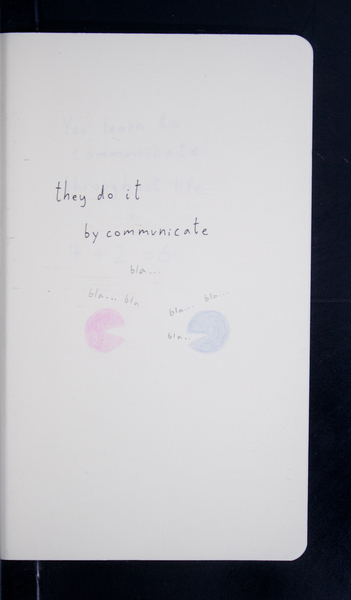 they do it
by communicate
bla...
bla... bla
bla... bla...
bla...